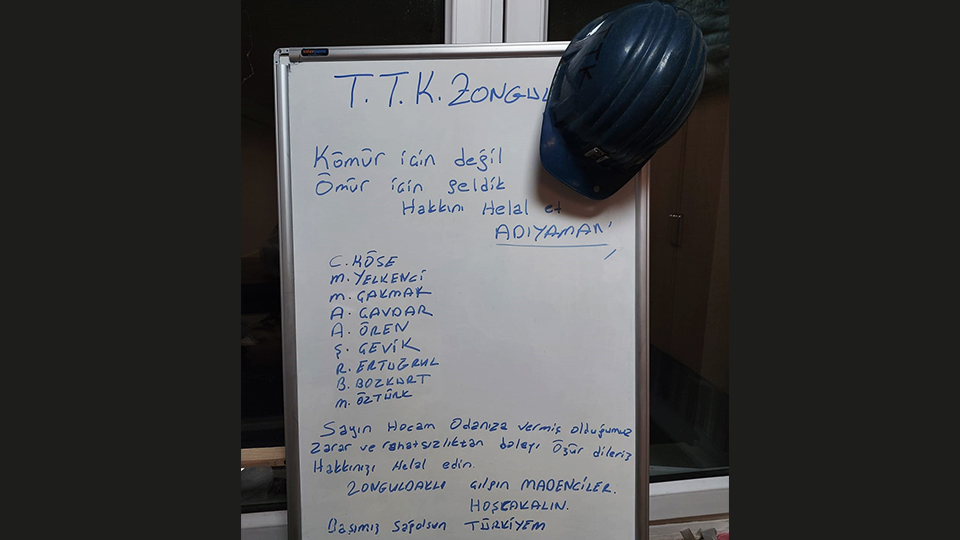 T.T.K. ZONGUL
Kömür için değil
Ömür için geldik
Hakkını Helal et
ADIYAMAN
C. KÖSE
M. YELKENCİ
M. ÇAKMAK
A. ÇAVDAR
A. ÖREN
Ş. ÇEVİK
R. ERTUĞRUL
B. BOZKURT
M. ÖZTÜRK
Sayın Hocam Odanıza vermiş olduğumuz
Zarar ve rahatsızlıktan dolayı Özür dileriz
Hakkınızı Helal edin.
ZONGULDAKLI çılgın MADENCİLER.
HOŞÇAKALIN.
Başımız Sağolsun TÜRKİYEM